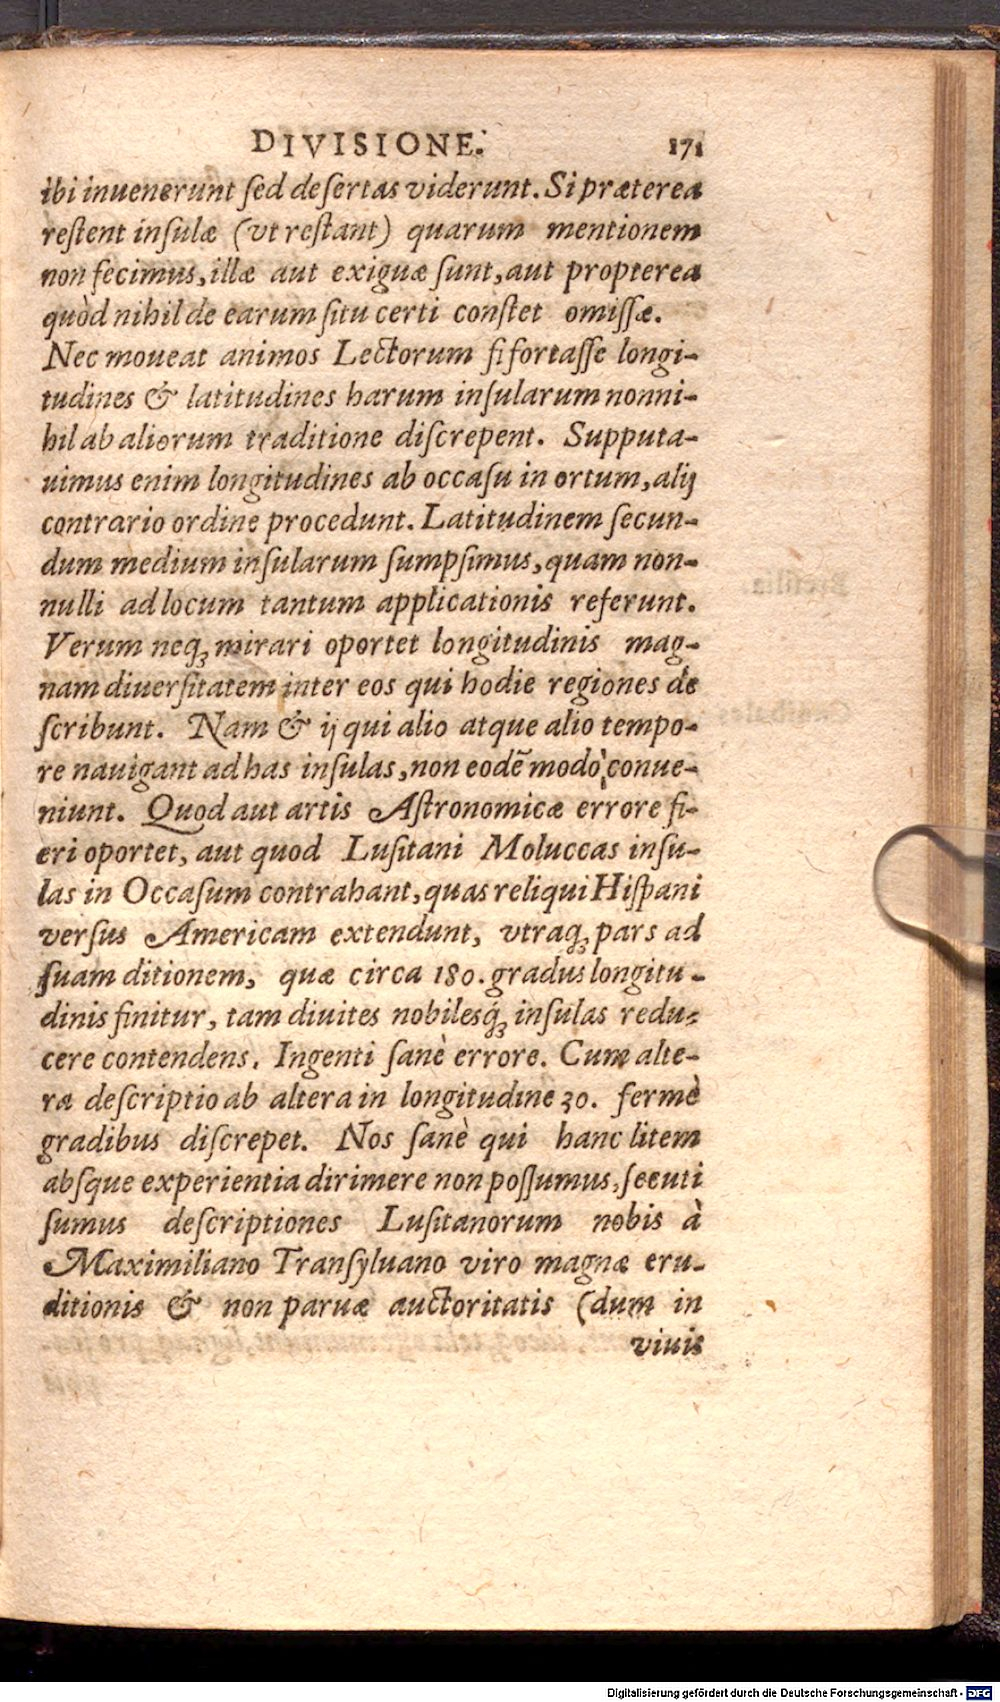 DIVISIONE. 171
ibi inuenerunt ſed deſertas viderunt. Si præterea
reſtent inſulæ (vt reſtant) quarum mentionem
non fecimus, illæ aut exiguæ ſunt, aut propterea
quòd nihil de earum ſitu certi conſtet omiſſæ.
Nec moueat animos Lectorum ſi fortaſſe longi-
tudines & latitudines harum inſularum nonni-
hil ab aliorum traditione diſcrepent. Supputa-
uimus enim longitudines ab occaſu in ortum, alij
contrario ordine procedunt. Latitudinem ſecun-
dum medium inſularum ſumpſimus, quam non-
nulli ad locum tantum applicationis referunt.
Verum neq; mirari oportet longitudinis mag-
nam diuerſitatem inter eos qui hodie regiones de
ſcribunt. Nam & ij qui alio atque alio tempo-
re nauigant ad has inſulas, non eodē modò conue-
niunt. Quod aut artis Aſtronomicæ errore fi-
eri oportet, aut quod Luſitani Moluccas inſu-
las in Occaſum contrahant, quas reliqui Hiſpani
verſus Americam extendunt, vtraq; pars ad
ſuam ditionem, quæ circa 180. gradus longitu-
dinis finitur, tam diuites nobilesq́; inſulas redu-
cere contendens. Ingenti ſanè errore. Cum alte-
ra deſcriptio ab altera in longitudine 30. fermè
gradibus diſcrepet. Nos ſanè qui hanc litem
abſque experientia dirimere non poſſumus, ſecuti
ſumus deſcriptiones Luſitanorum nobis à
Maximiliano Tranſyluano viro magnæ eru-
ditionis & non paruæ auctoritatis (dum in
viuis
Digitalisierung gefördert durch die Deutsche Forschungsgemeinschaft - DFG